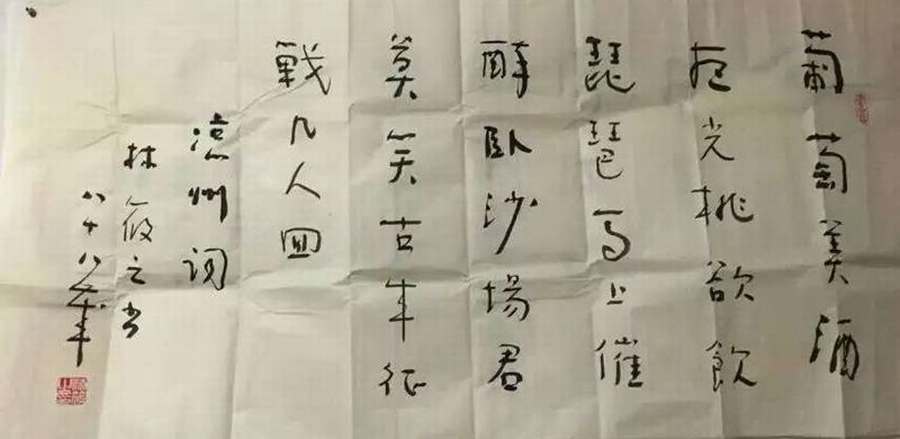 葡萄美酒
夜光杯欲飲
琵琶馬上催
醉臥沙場君
莫笑古来征
戰几人回
涼州詞
林筱之书
八十八歲